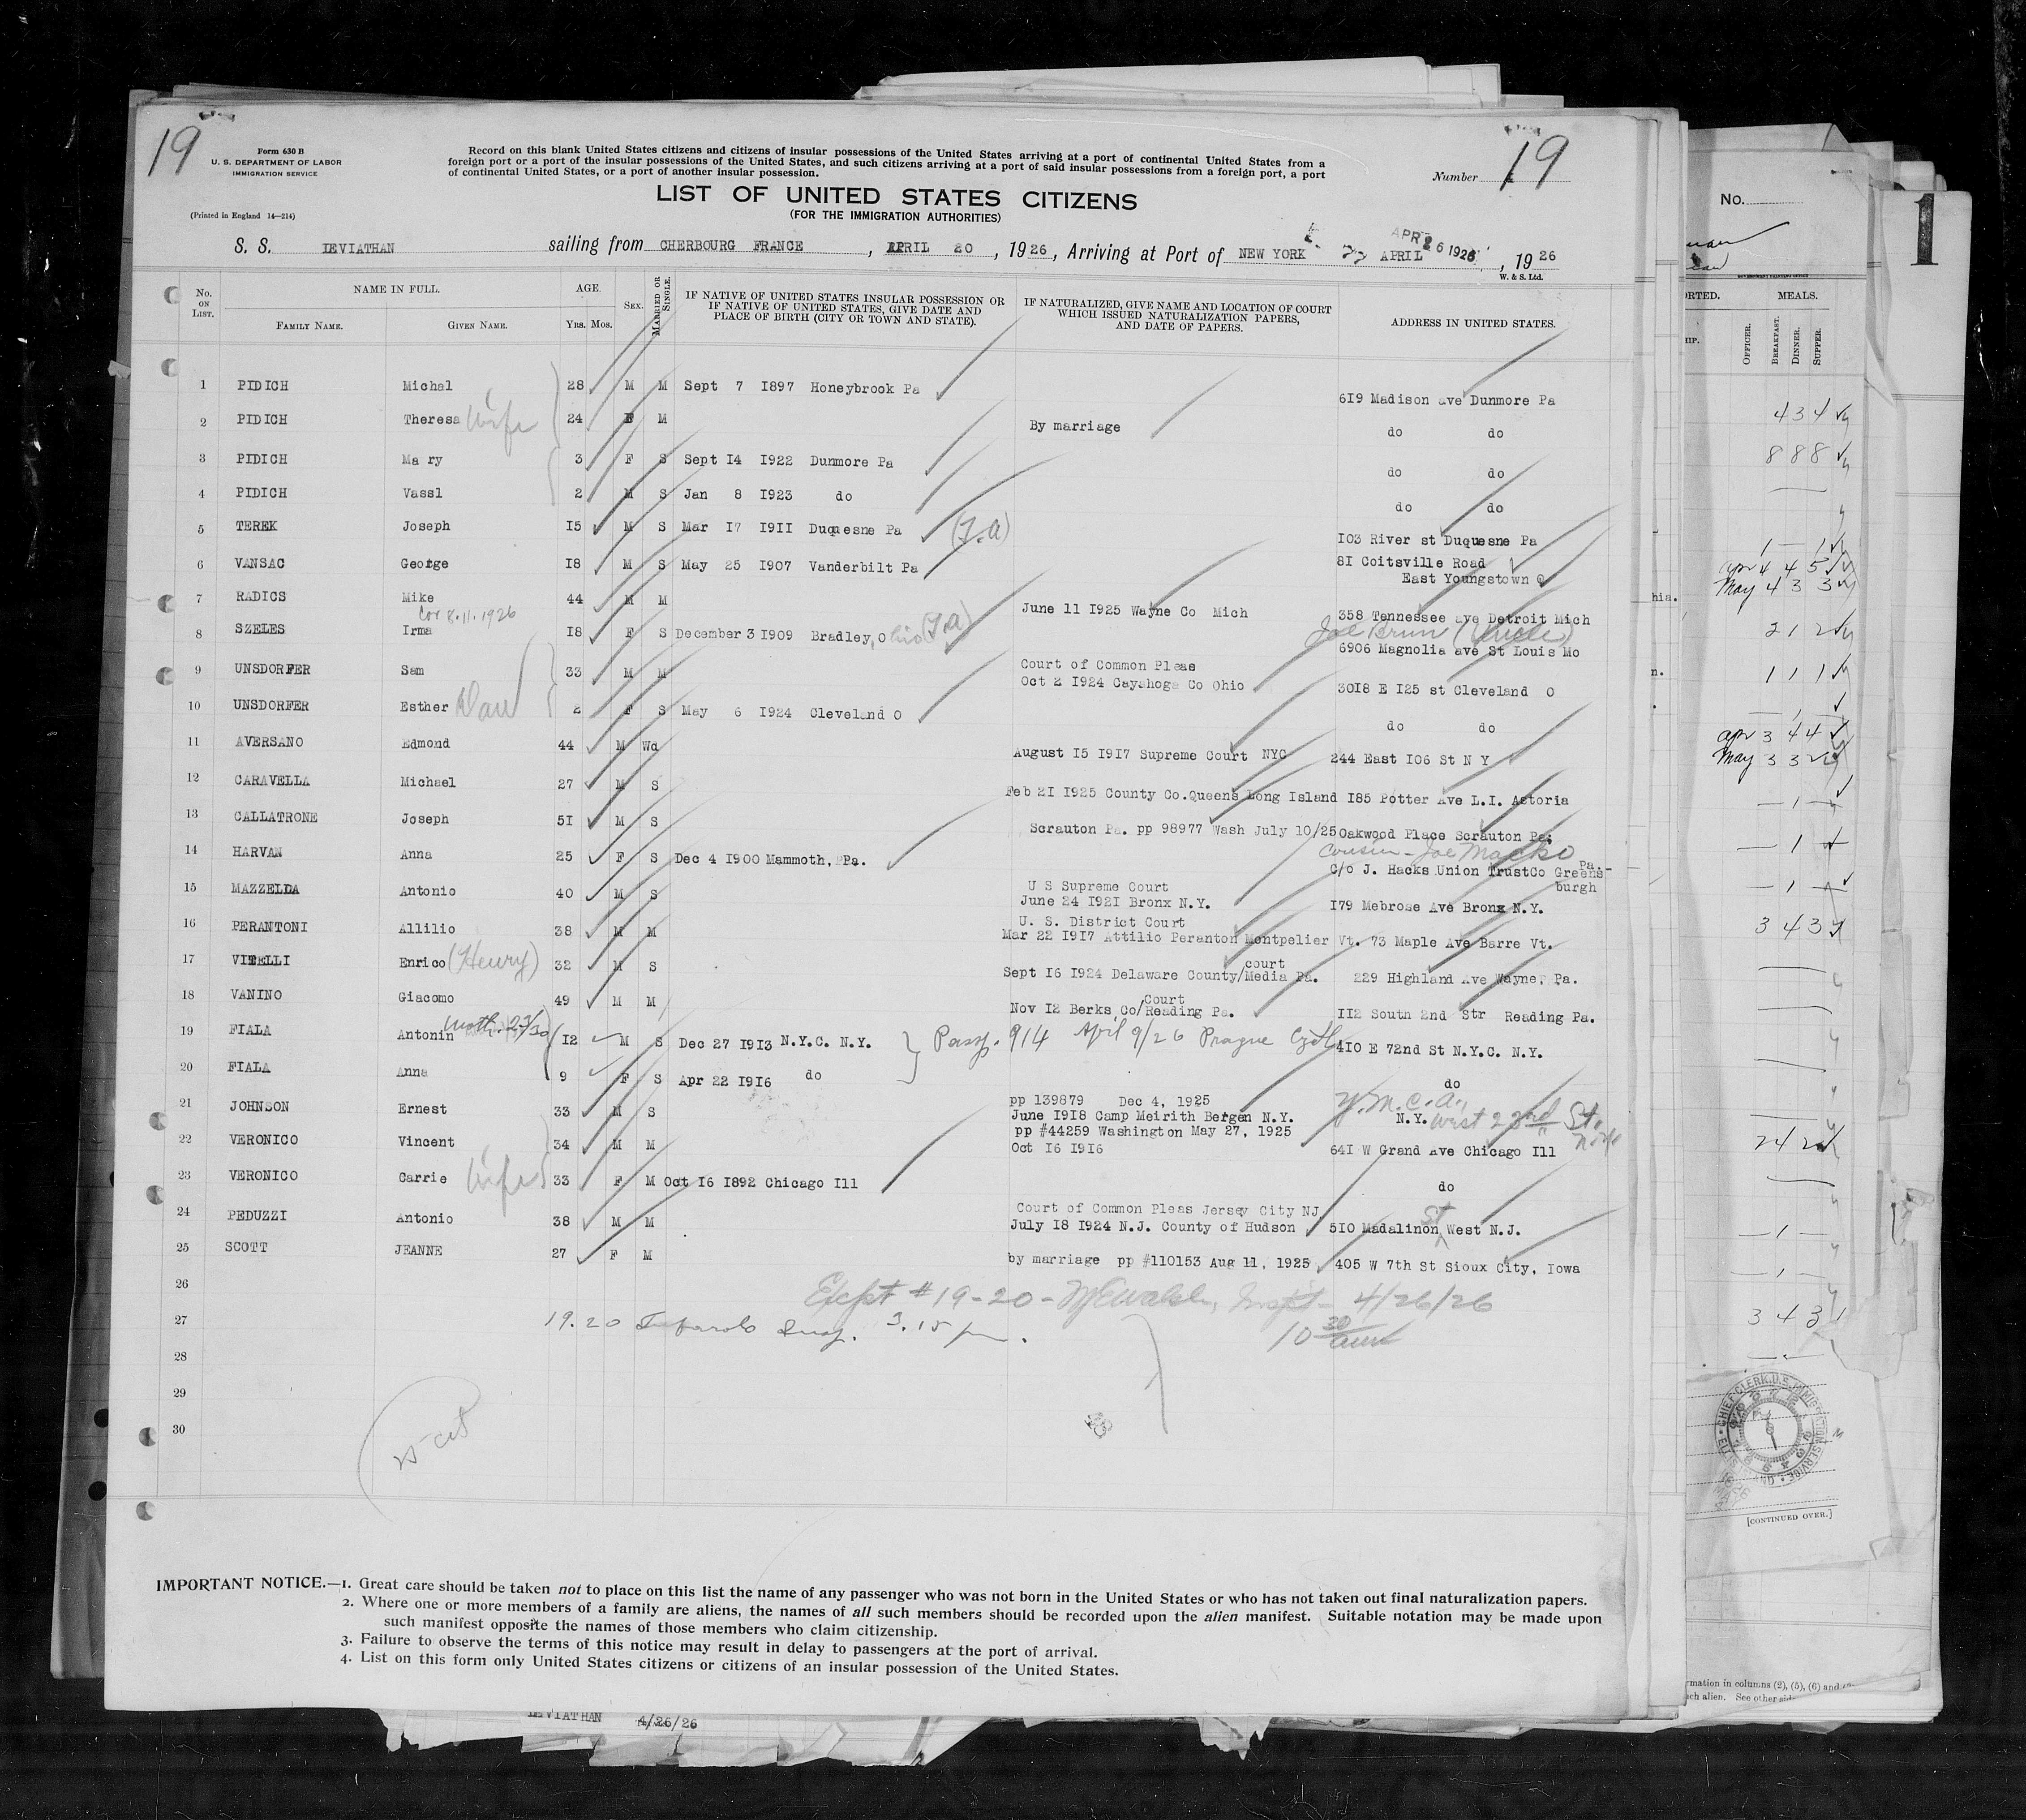 19
Form 630 B
U. S. DEPARTMENT OF LABOR
IMMIGRATION SERVICE
(Printed in England 14—214)
Record on this blank United States citizens and citizens of insular possessions of the United States arriving at a port of continental United States from a
foreign port or a port of the insular possessions of the United States, and such citizens arriving at a port of said insular possessions from a foreign port, a port
of continental United States, or a port of another insular possession.
Number 19
LIST OF UNITED STATES CITIZENS
(FOR THE IMMIGRATION AUTHORITIES)
APR 26 1926
S. S. LEVIATHAN sailing from CHERBOURG FRANCE, APRIL 20, 1926, Arriving at Port of NEW YORK APRIL, 1926
W. & S. Ltd.
No. ON LIST. NAME IN FULL. FAMILY NAME. GIVEN NAME. AGE. Yrs. Mos. SEX. MARRIED OR SINGLE. IF NATIVE OF UNITED STATES INSULAR POSSESSION OR IF NATIVE OF UNITED STATES, GIVE DATE AND PLACE OF BIRTH (CITY OR TOWN AND STATE). IF NATURALIZED, GIVE NAME AND LOCATION OF COURT WHICH ISSUED NATURALIZATION PAPERS, AND DATE OF PAPERS. ADDRESS IN UNITED STATES.
1 PIDICH Michal 28 M M Sept 7 1897 Honeybrook Pa 619 Madison ave Dunmore Pa
2 PIDICH Theresa Wife 24 F M By marriage do do
3 PIDICH Mary 3 F S Sept 14 1922 Dunmore Pa do do
4 PIDICH Vassl 2 M S Jan 8 1923 do do do
5 TEREK Joseph 15 M S Mar 17 1911 Duquesne Pa (J.A) 103 River st Duquesne Pa
6 VANSAC George 18 M S May 25 1907 Vanderbilt Pa 81 Coitsville Road
East Youngstown O
7 RADICS Mike 44 M M June 11 1925 Wayne Co Mich 358 Tennessee aye Detroit Mich
Cor 8.11.1926
Joe Brun (Uncle)
8 SZELES Irma 18 F S December 3 1909 Bradley, Ohio (J.A) 6906 Magnolia ave St Louis Mo
9 UNSDORFER Sam 33 M M Court of Common Pleas
Oct 2 1924 Cayahoga Co Ohio 3018 E 125 st Cleveland O
10 UNSDORFER Esther Dau 2 F S May 6 1924 Cleveland O do do
11 AVERSANO Edmond 44 M Wd August 15 1917 Supreme Court NYC 244 East 106 St N Y
12 CARAVELLA Michael 27 M S Feb 21 1925 County Co.Queens Long Island 185 Potter Ave L.I. Astoria
13 CALLATRONE Joseph 51 M S Scrauton Pa. pp 98977 Wash July 10/25 Oakwood Place Scrauton Pa:
Cousin - Joe Macko
14 HARVAN Anna 25 F S Dec 4 1900 Mammoth, Pa. C/o J. Hacks Union TrustCo Greens-
burgh Pa.
15 MAZZELDA Antonio 40 M S U S Supreme Court
June 24 1921 Bronx N.Y. 179 Mebrose Ave Bronx N.Y.
16 PERANTONI Allilio 38 M M U. S. District Court
Mar 22 1917 Attilio Peranton Montpelier Vt. 73 Maple Ave Barre Vt.
17 VITELLI Enrico (Henry) 32 M S Sept 16 1924 Delaware County/court Media Pa. 229 Highland Ave Wayne, Pa.
18 VANINO Giacomo 49 M M Nov 12 Berks Co/Court Reading Pa. 112 South 2nd Str Reading Pa.
19 FIALA Antonin 12 M S Dec 27 1913 N.Y.C. N.Y. Passp. 914 April 9/26 Prague 410 E 72nd St N.Y.C. N.Y.
20 FIALA Anna 9 F S Apr 22 1916 do do
21 JOHNSON Ernest 33 M S pp 139879 Dec 4, 1925
June 1918 Camp Meirith Bergen N.Y. Y.M.C.A. N.Y. West 23rd St.
22 VERONICO Vincent 34 M M pp #44259 Washington May 27, 1925
Oct 16 1916 641 W Grand Ave Chicago Ill
23 VERONICO Carrie Wife 33 F M Oct 16 1892 Chicago Ill do
24 PEDUZZI Antonio 38 M M Court of Common Pleas Jersey City NJ
July 18 1924 N.J. County of Hudson 510 Madalinon St West N.J.
25 SCOTT JEANNE 27 F M by marriage pp #110153 Aug 11, 1925 405 W 7th St Sioux City, Iowa
26
# 19-20 - 4/26/26
27 19.20 3.15 pm.
10 30 am
28
29
30
IMPORTANT NOTICE.—1. Great care should be taken not to place on this list the name of any passenger who was not born in the United States or who has not taken out final naturalization papers.
2. Where one or more members of a family are aliens, the names of all such members should be recorded upon the alien manifest. Suitable notation may be made upon
such manifest opposite the names of those members who claim citizenship.
3. Failure to observe the terms of this notice may result in delay to passengers at the port of arrival.
4. List on this form only United States citizens or citizens of an insular possession of the United States.
LEVIATHAN 4/26/26
No.
1
MEALS.
OFFICER. BREAKFAST. DINNER. SUPPER.
4 3 4
8 8 8
1 — 1
apr 4 4 5
May 4 3 3
2 1 2
1 1 1
— 1 —
apr 3 4 4
May 3 3 2
— 1 —
— 1 —
— 1 —
3 4 3
2 4 2
— 1 —
— 1 —
3 4 3
CHIEF CLERK, U.S. IMMIGRATION SERVICE
[CONTINUED OVER.]
rmation in columns (2), (5), (6) and
ach alien. See other